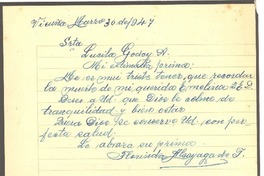 Vicuña Marzo 30 de 1947
Srta
Lucila Godoy A.
Mi estimada prima:
De es mui triste tener, que recordar
la muerte de mi querida Emelina Q.E.D.
Deseo a Ud. que Dios le colme de
tranquilidad y bien estar
Quiera Dios se conserve Ud. con per-
fecta salud;
Le abraza su prima
Florinda Mayaga de T.